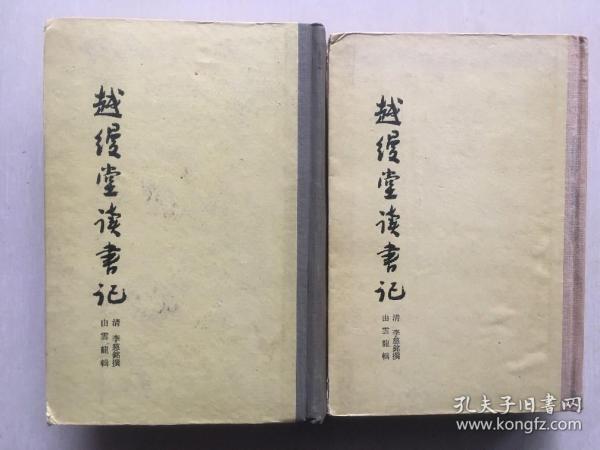 越缦堂读书记
清 李慈銘撰
由雲龍輯
越缦堂读书记
清 李慈銘撰
由雲龍輯
孔夫子旧书网
www.kongfz.com